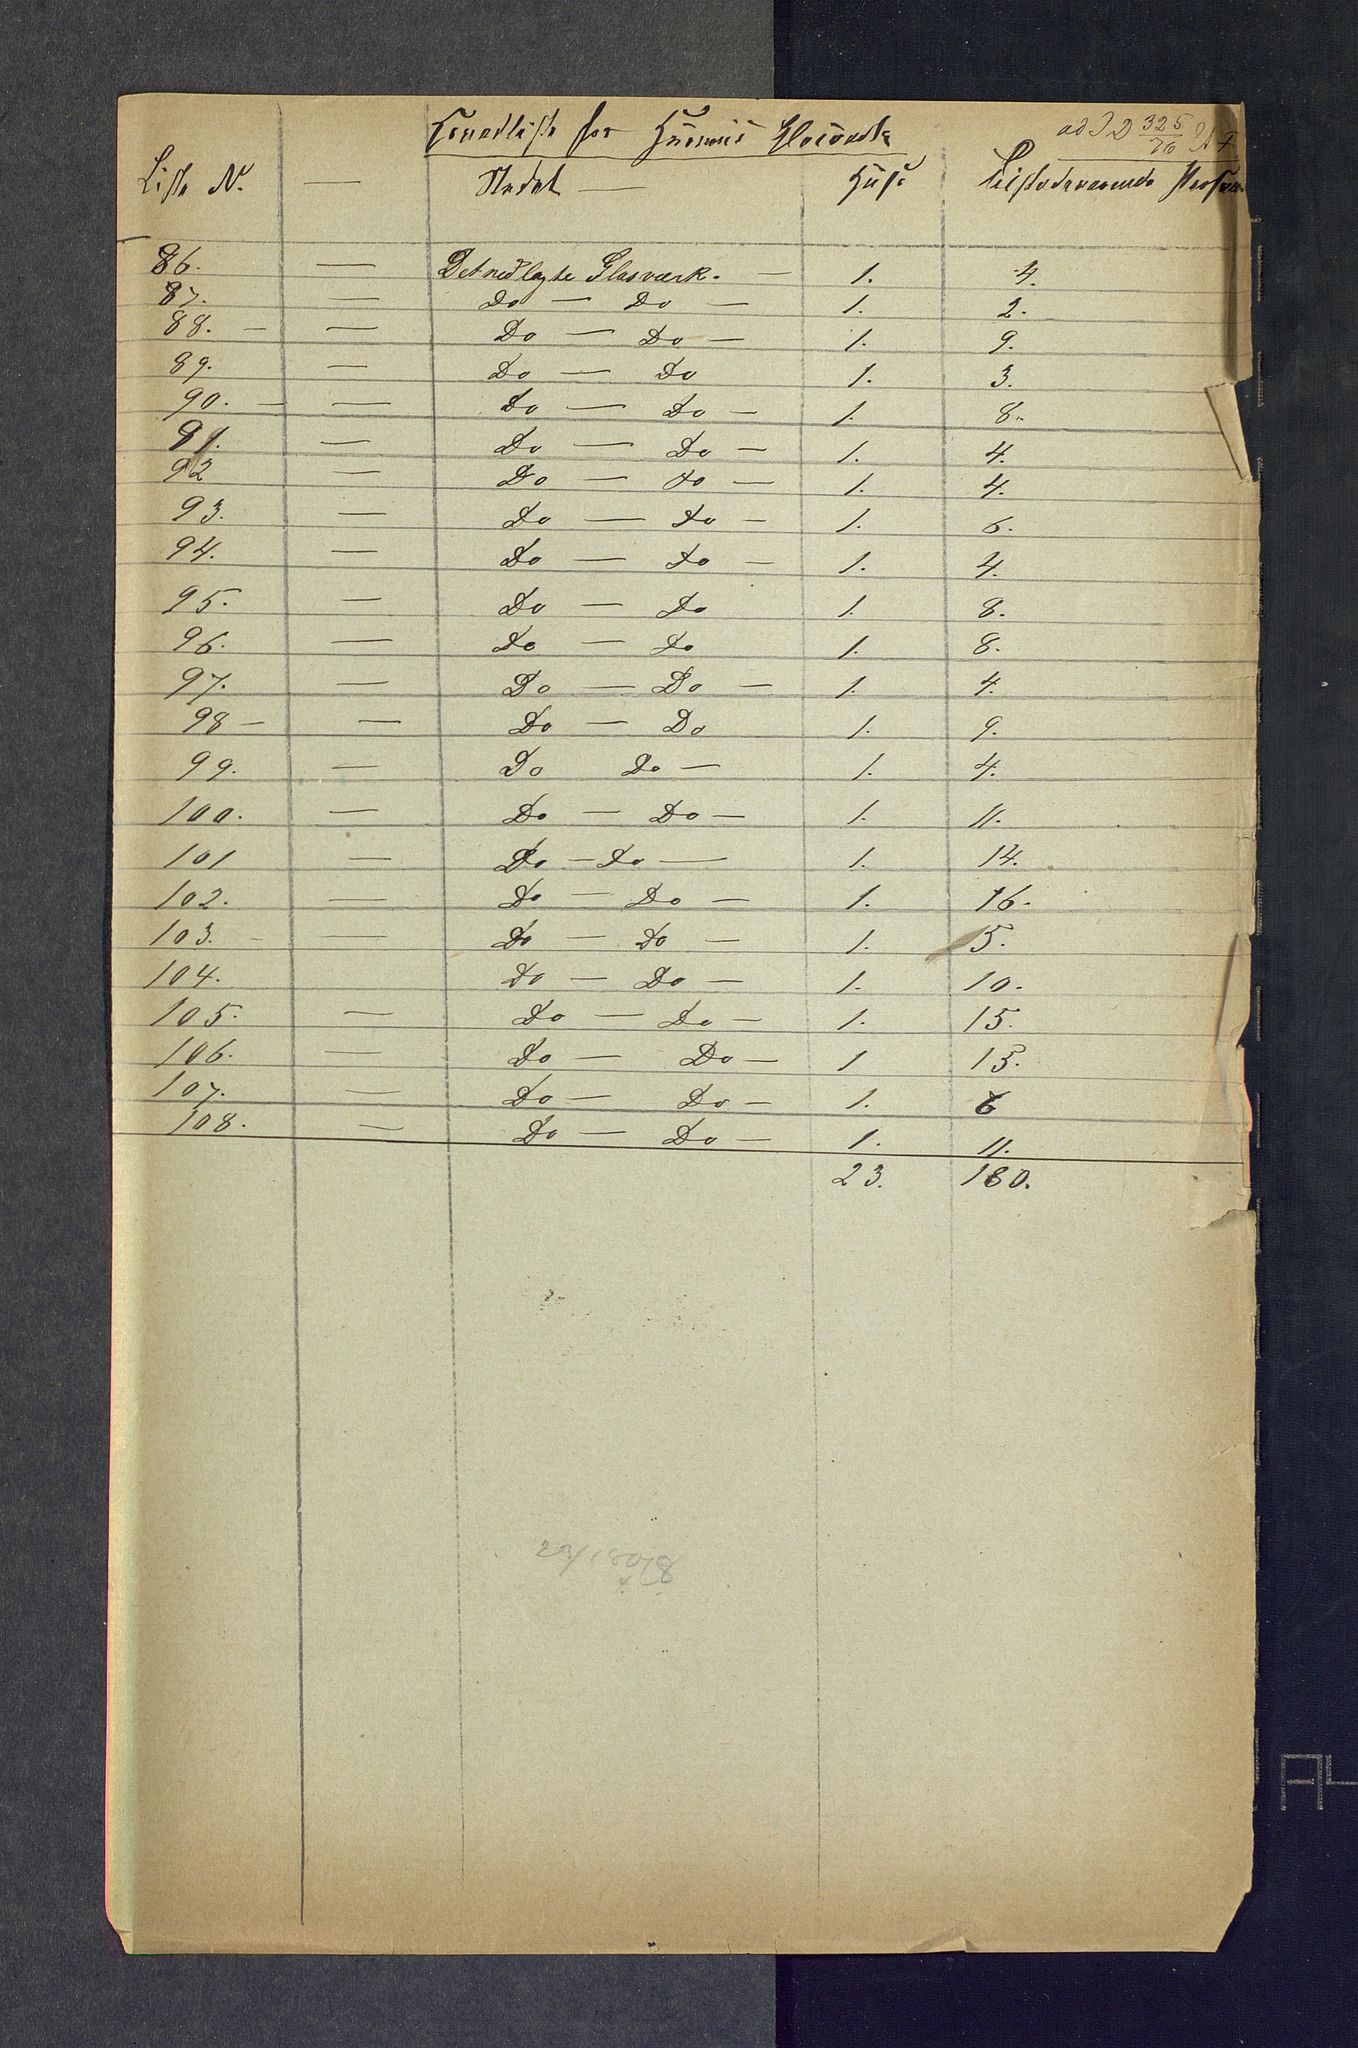 ad I D 325/76 A F.
Hovedliste for Hurums Glasværk
Liste N. — Stedet — Huse Tilstedeværende Personer
86. — Det nedlagte Glasværk. — 1. 4.
87. — Do — Do — 1. 2.
88. — — Do — Do — 1. 9.
89. — Do — Do 1. 3.
90. — — Do — Do — 1. 8.
91. — Do — Do — 1. 4.
92 — Do — Do — 1. 4.
93. — Do — Do — 1. 6.
94. — Do — Do — 1. 4.
95. — Do — Do 1. 8.
96. — Do — Do 1. 8.
97. — Do — Do — 1. 4.
98 — — Do — Do 1. 9.
99. — Do Do — 1. 4.
100. — Do — Do — 1. 11.
101 — Do — Do — 1. 14.
102. — Do — Do — 1. 16.
103. — — Do — Do — 1. 5.
104. Do — Do — 1. 10.
105. — Do — Do — 1. 15.
106. — Do — Do — 1 15.
107. — Do — Do — 1. 6
108. — Do — Do — 1. 11.
23. 180.
A4